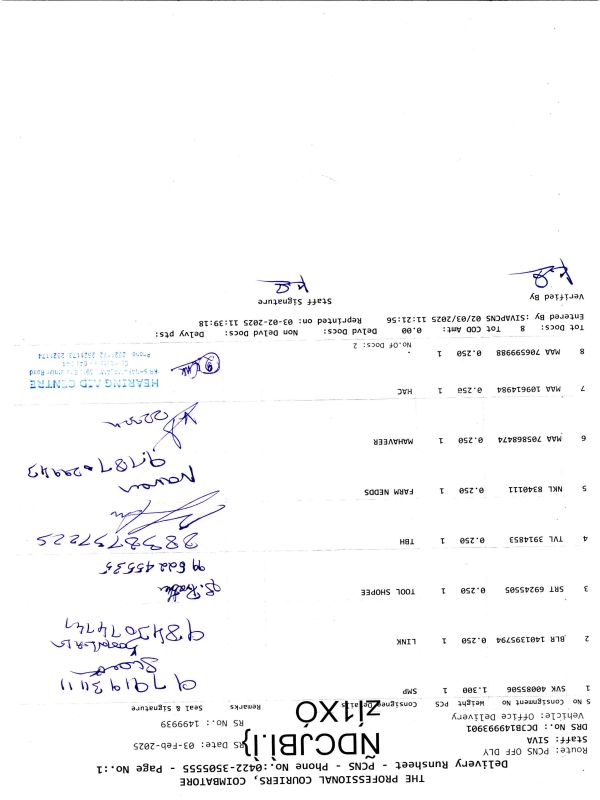 THE PROFESSIONAL COURIERS, COIMBATORE
Delivery Runsheet - PCNS - Phone No.:0422-3505555 - Page No.:1
Route: PCNS OFF DLY
Staff: SIVA
DRS No.: DCJB1499939001
Vehicle: Office Delivery
ÑDCJBl.Ì}
zí1XÓ
RS Date: 03-Feb-2025
RS No.: 1499939
S No Consignment No Weight PCS Consignee Details Remarks Seal & Signature
1 SVK 40085506 1.300 1 SMP
9791193411
2 BLR 1401395794 0.250 1 LINK
9843074747
3 SRT 69245505 0.250 1 TOOL SHOPEE
9962245535
4 TVL 3914853 0.250 1 TBH
5 NKL 8340111 0.250 1 FARM NEDDS
Navan
6 MAA 70586474 0.250 1 MAHAVEER
7 MAA 109614984 0.250 1 HAC
HEARING AID CENTRE
8 MAA 70659988 0.250 1 .
No.Of Docs: 2
Tot Docs: 8 Tot COD Amt: 0.00 Delvd Docs: Non Delvd Docs: Delvy pts:
Entered By :SIVAPCNS 02/03/2025 11:21:56 Reprinted on: 03-02-2025 11:39:18
Verified By Staff Signature